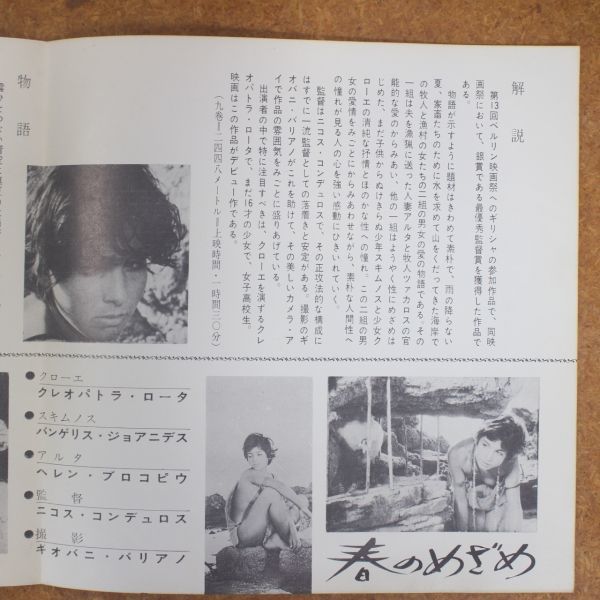 解説
第13回ベルリン映画祭へのギリシャの参加作品で、同映
画祭において、銀賞である最優秀監督賞を獲得した作品で
ある。
物語が示すように題材はきわめて素朴で、雨の降らない
夏、家畜たちのために水を求めて山をくだってきた海岸で
の牧人と漁村の女たちの二組の男女の愛の物語である。その
一組は夫を漁猟に送った人妻アルタと牧人ツァカロスの官
能的な愛のからみあい、他の一組はようやく性にめざめは
じめた、まだ子供からぬけきらぬ少年スキムノスと少女ク
ローエの清純な抒情とほのかな性への憧れ。この二組の男
女の愛情をみごとにからみあわせながら、素朴な人間性へ
の憧れが見る人の心を強い感動にひきいれていく。
監督はニコス・コンデュロスで、その正攻法的な構成に
はすでに一流監督としての落着きと安定がある。撮影のギ
オバニ・バリアノがこれを助けて、その美しいカメラ・ア
イで作品の雰囲気をみごとに盛りあげている。
出演者の中で特に注目すべきは、クローエを演ずるクレ
オパトラ・ロータで、まだ16才の少女で、女子高校生。
映画はこの作品がデビュー作である。
（九巻—二四四八メートル＝上映時間・一時間三〇分）
物語
●クローエ
クレオパトラ・ロータ
●スキムノス
バンゲリス・ジョアニデス
●アルタ
ヘレン・プロコピウ
●監督
ニコス・コンデュロス
●撮影
ギオバニ・バリアノ
春のめざめ